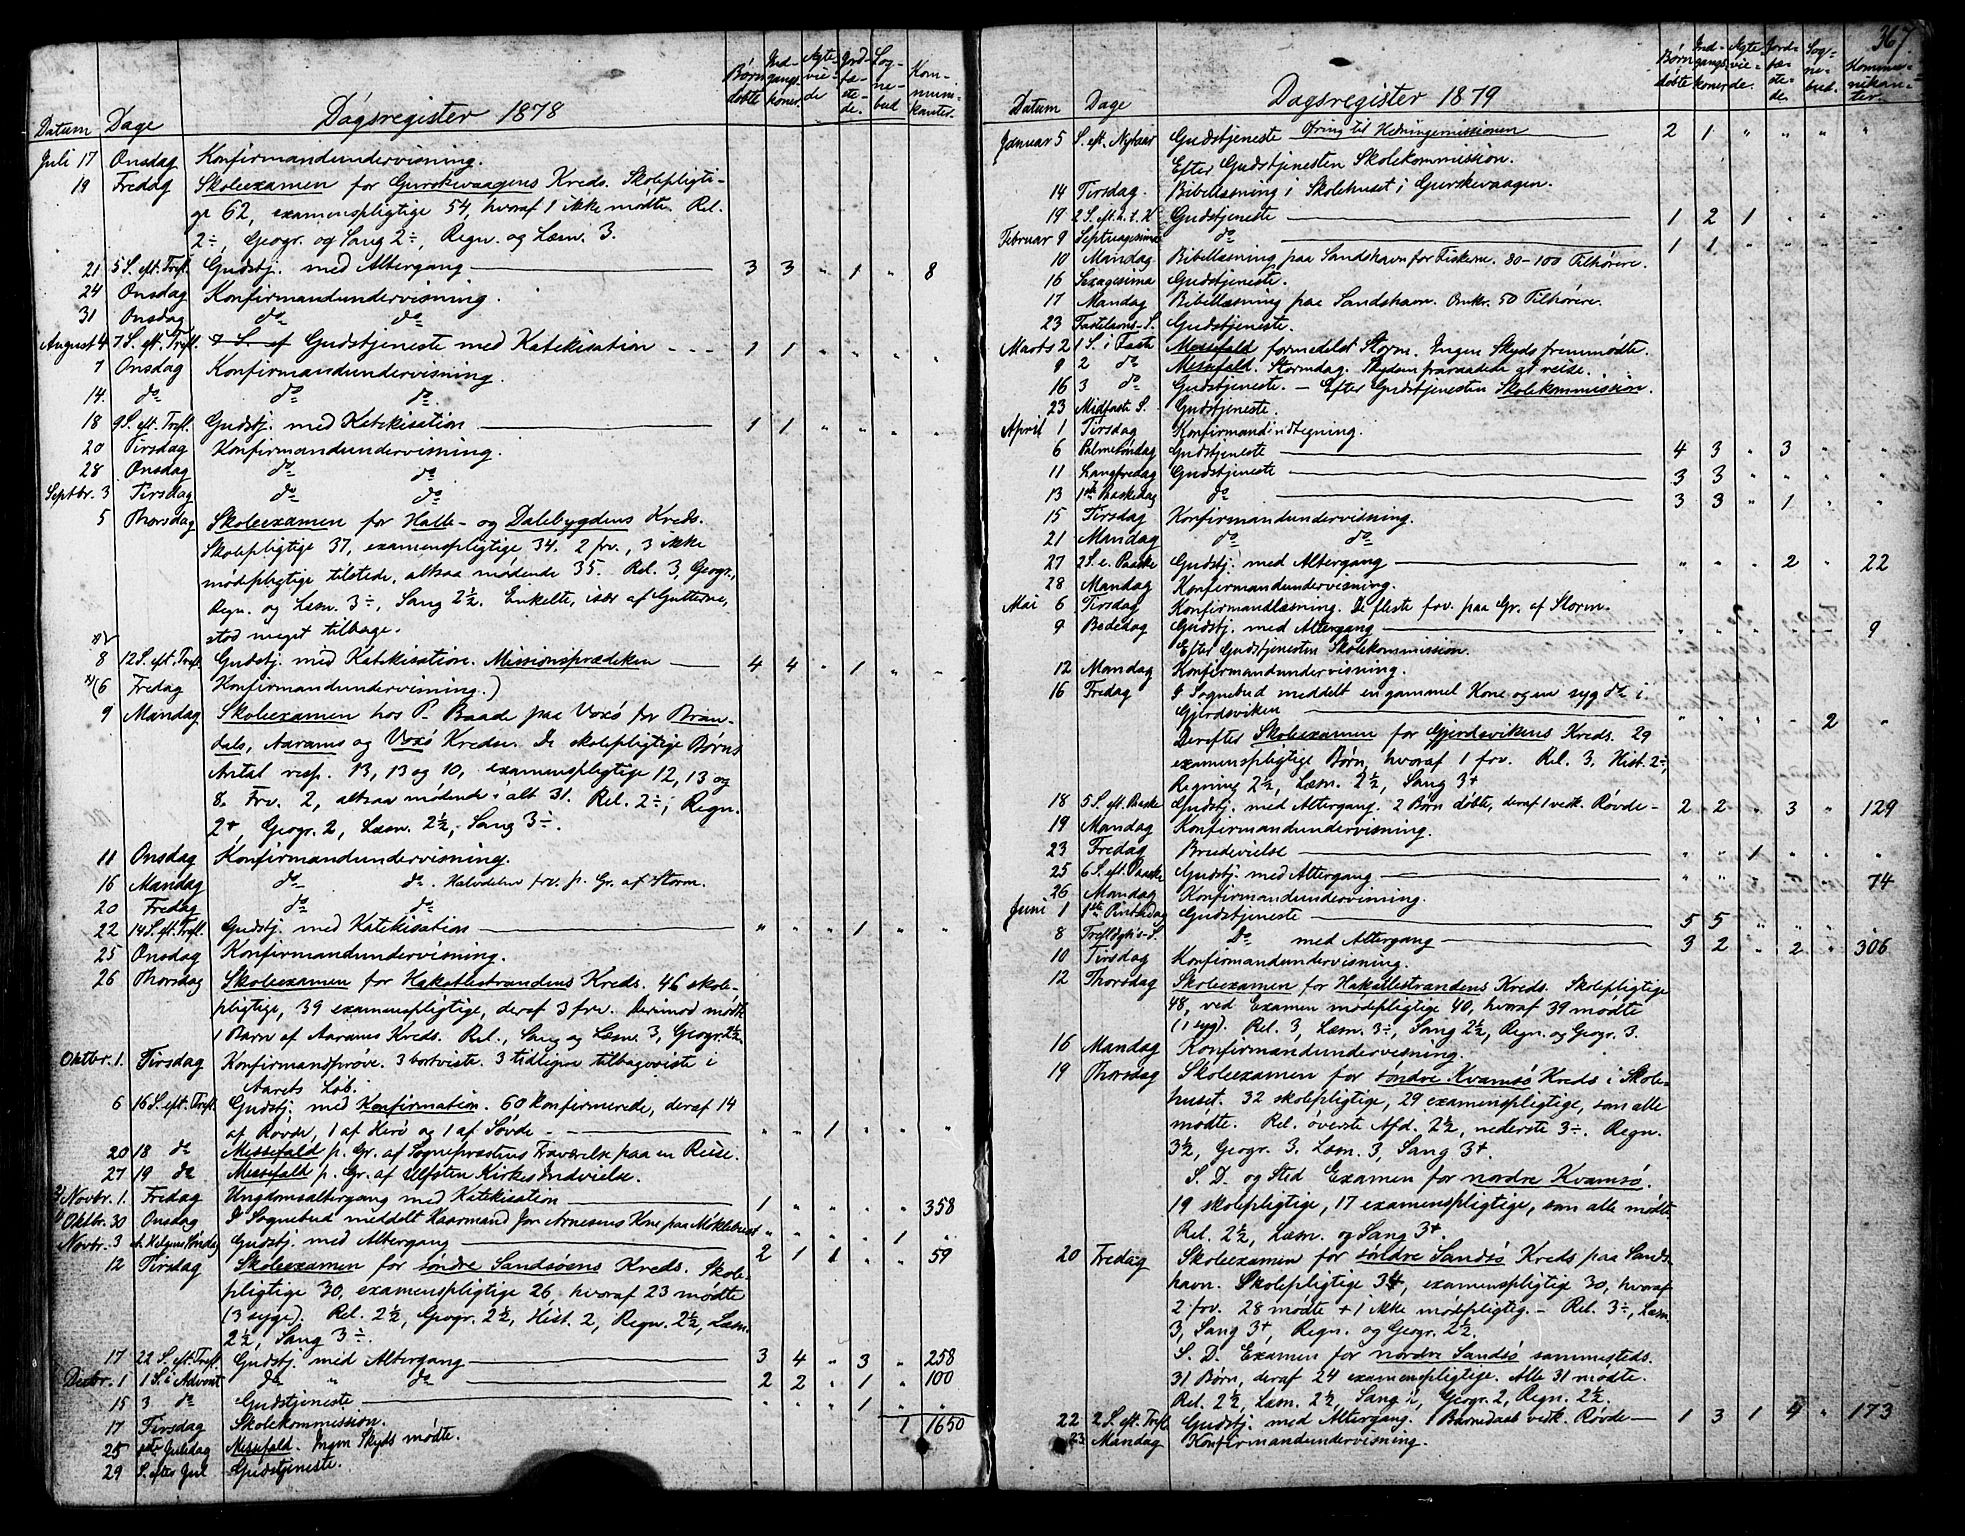 Datum Dage Dagsregister 1878 Børn døbte Ind-gangs koner Ægte-vie-de Jord-fæ-ste-de. Sog-ne-bud Kom-muni-kanter.
Juli 17 Onsdag Konfirmandundervisning.
19 Fredag Skoleexamen for Gurskevaagens Kreds. Skolepligti-
ge 62, examenspligtige 54, hvoraf 1 ikke mødte. Rel.
2÷, Geogr. og Sang 2÷, Regn. og Læsn. 3.
21 5 S. eft. Tref. Gudstj. med Altergang 3 3 " 1 " 8
24 Onsdag Konfirmandundervisning.
31 Onsdag do do
August 4 7 S. eft. Tref. Gudstjeneste med Katekisation 1 1 " " " "
7 Onsdag Konfirmandundervisning.
14. do do do.
18 9 S. eft. Tref. Gudstj. med Katekisation 1 1 " " " "
20 Tirsdag Konfirmandundervisning.
28 Onsdag do do
Septbr. 3 Tirsdag do do
5 Thorsdag Skoleexamen for Halle- og Dalebygdens Kreds.
Skolepligtige 37, examenspligtige 34. 2 frv., 3 ikke
mødepligtige tilstede, altsaa mødende 35. Rel. 3, Geogr.,
Regn. og Læsn. 3÷, Sang 2½. Enkelte, især af Gutterne,
stod meget tilbage.
8 12 S. eft. Tref. Gudstj. med Katekisation. Missionsprædiken 4 4 " 1 " "
x) (6 Fredag Konfirmandundervisning.)
9 Mandag Skoleexamen hos P. Baade paa Voxø for Bran-
dals, Aarams og Voxø Kredse. De skolepligtige Børns
Antal resp. 13, 13 og 10, examenspligtige 12, 13 og
8. Frv. 2, altsaa mødende i alt 31. Rel. 2÷, Regn.
2+, Geogr. 2, Læsn. 2½, Sang 3÷.
11 Onsdag Konfirmandundervisning.
16 Mandag do do. Halvdelen frv. p. Gr. af Storm.
20 Fredag do do
22 14 S. eft. Tref. Gudstj. med Katekisation " " " 1 " "
25 Onsdag Konfirmandundervisning.
26 Thorsdag Skoleexamen for Hakallestrandens Kreds. 46 skole-
pligtige, 39 examenspligtige, deraf 3 frv. Derimod mødte
1 Barn af Aarams Kreds. Rel., Sang og Læsn. 3, Geogr. 2½.
Oktbr. 1. Tirsdag Konfirmandprøve. 3 bortviste. 3 tidligere tilbageviste i
Aarets Løb.
6 16 S. eft. Tref. Gudstj. med Konfirmation. 60 Konfirmerede, deraf 14
af Røvde, 1 af Herø og 1 af Søvde " " 1 " " "
20 18 do Messefald p. Gr. af Sognepræstens Fraværelse paa en Reise.
27 19 do Messefald p. Gr. af Ulfsten Kirkes Indvielse.
Novbr. 1. Fredag Ungdomsaltergang med Katekisation 1 " " " " 358
Oktbr. 30 Onsdag I Sognebud meddelt Kaarmand Jon Arnesens Kone paa Møklebust " " " " 1 "
Novbr. 3 A. Helgens Søndag Gudstj. med Altergang 2 1 1 " " 59
12 Tirsdag Skoleexamen for søndre Sandsøens Kreds. Skole-
pligtige 30, examenspligtige 26, hvoraf 23 mødte
(3 syge). Rel. 2½, Geogr. 2½, Hist. 2, Regn. 2½, Læsn.
2½, Sang 3÷.
17 22 S. eft. Tref. Gudstj. med Altergang 3 4 " 3 " 258
Decbr. 1 1 S. i Advent do " do 2 2 " 1 " 100
15 3 do Gudstjeneste " " " 1 " "
17 Tirsdag Skolekommission. 1 1650
25 1ste Juledag Messefald. Ingen Skyds mødte.
29 S. efter Jul Gudstjeneste.
367.
Datum Dage Dagsregister 1879 Børn døbte Ind-gangs koner Ægte-vie-de. Jord-fæ-ste-de. Sog-ne-bud. Kommu-nikan-ter.
Januar 5 S. eft. Nytaar Gudstjeneste Ofring til Hedningemissionen 2 1 " " " "
Efter Gudstjenesten Skolekommission.
14 Tirsdag. Bibellæsning i Skolehuset i Gurskevaagen.
19 2 S. eft. H. t. K. Gudstjeneste 1 2 1 " " "
Februar 9 Septuagesima do 1 1 " " " "
10 Mandag Bibellæsning paa Sandshavn for Fiskerne. 80-100 Tilhørere.
16 Sexagesima Gudstjeneste.
17 Mandag Bibellæsning paa Sandshavn. Omkr. 50 Tilhørere.
23 Fastelavns-S. Gudstjeneste.
Marts 2 1 S. i Faste Messefald formedelst Storm. Ingen Skyds fremmødte.
9 2 do Messefald. Stormdag. Skydsen fraraadede at reise.
16 3 do Gudstjeneste. – Efter Gudstjenesten Skolekommission.
23 Midfaste S. Gudstjeneste.
April 1 Tirsdag Konfirmandindtegning.
6 Palmesøndag Gudstjeneste 4 3 " 3 " "
11 Langfredag Gudstjeneste 3 3 " " " "
13 1ste Paaskedag do 3 3 " 1 " "
15 Tirsdag Konfirmandundervisning.
21 Mandag do do
27 2 S. e. Paaske Gudstj. med Altergang " " " 2 " 22
28 Mandag Konfirmandundervisning.
Mai 6 Tirsdag Konfirmandlæsning. De fleste frv. paa Gr. af Storm.
9 Bededag Gudstj. med Altergang " " " " " 9
Efter Gudstjenesten Skolekommission.
12 Mandag Konfirmandundervisning.
16 Fredag I Sognebud meddelt en gammel Kone og en syg do i
Gjerdsviken " " " " 2 "
Derefter Skoleexamen for Gjerdsvikens Kreds. 29
examenspligtige Børn, hvoraf 1 frv. Rel. 3, Hist. 2÷,
Regning 2½, Læsn. 2½, Sang 3+
18 5 S. eft. Paaske Gudstj. med Altergang. 2 Børn døbte, deraf 1 vedk. Røvde 2 2 " 3 " 129
19 Mandag Konfirmandundervisning.
23 Fredag Brudevielse " " 1 " " "
25 6 S. eft. Paaske Gudstj. med Altergang " " " " " 74
26 Mandag Konfirmandundervisning.
Juni 1 1ste Pintsedag Gudstjeneste 5 5 " " " "
8 Trefoldighs-S. Do med Altergang 3 2 " 2 " 306
10 Tirsdag Konfirmandundervisning.
12 Thorsdag Skoleexamen for Hakallestrandens Kreds. Skolepligtige
48, ved Examen mødepligtige 40, hvoraf 39 mødte
(1 syg). Rel. 3, Læsn. 3÷, Sang 2½, Regn. og Geogr. 3.
16 Mandag Konfirmandundervisning.
19 Thorsdag Skoleexamen for søndre Kvamsø Kreds i Skole-
huset. 32 skolepligtige, 29 examenspligtige, som alle
mødte. Rel. øverste Afd. 2½, nederste 3÷. Regn.
3½, Geogr. 3. Læsn. 3, Sang 3+.
S. D. og Sted Examen for nordre Kvamsø.
19 skolepligtige, 17 examenspligtige, som alle mødte.
Rel. 2½, Læsn. og Sang 3+.
20 Fredag Skoleexamen for søndre Sandsø Kreds paa Sands-
havn. Skolepligtige 34, examenspligtige 30, hvoraf
2 frv. 28 mødte + 1 ikke mødepligtig. – Rel. 3÷, Læsn.
3, Sang 3+, Regn. og Geogr. 2½.
S. D. Examen for nordre Sandsø sammesteds.
31 Børn, deraf 24 examenspligtige. Alle 31 mødte.
Rel. 2½, Læsn. 2½, Sang i, Geogr. 2, Regn. 2½.
22 2 S. eft. Tref. Gudstj. med Altergang. 1 Barnedaab vedk. Røvde 1 3 1 4 " 173
23 Mandag Konfirmandundervisning.